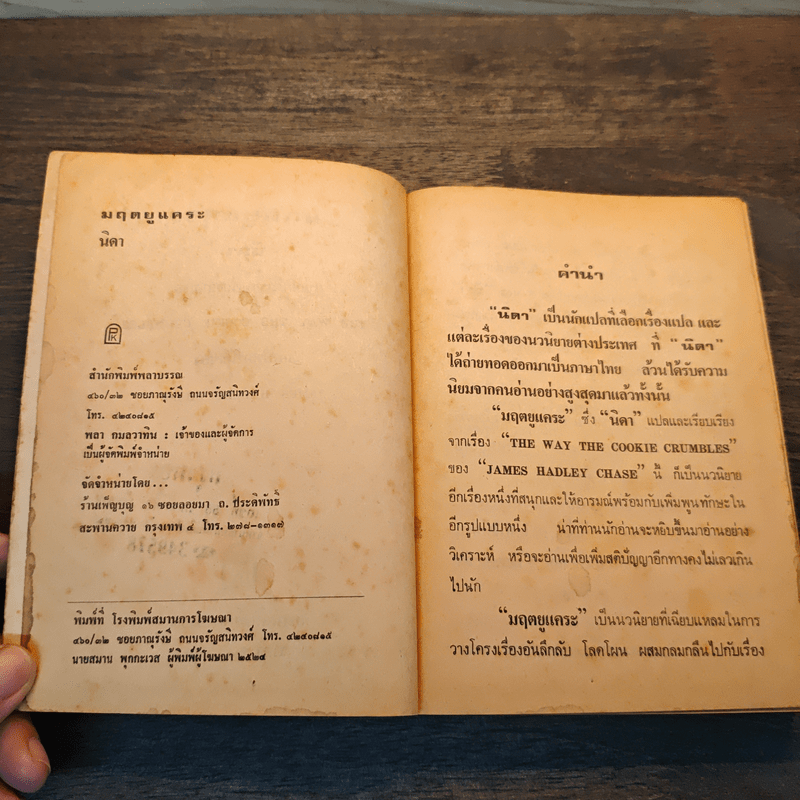 มฤตยูแคระ
นิดา
PK
สำนักพิมพ์พลาบรรณ
๔๖๐/๓๒ ซอยภาณุรังษี ถนนจรัญสนิทวงศ์
โทร. ๔๒๔๐๘๑๕
พลา กมลวาทิน : เจ้าของและผู้จัดการ
เป็นผู้จัดพิมพ์จำหน่าย
จัดจำหน่ายโดย...
ร้านเพ็ญบุญ ๑๖ ซอยลอยมา ถ. ประดิพัทธ์
สะพานควาย กรุงเทพ ๔ โทร. ๒๗๘-๑๓๑๗
พิมพ์ที่ โรงพิมพ์สมานการโฆษณา
๔๖๐/๓๒ ซอยภาณุรังษี ถนนจรัญสนิทวงศ์ โทร. ๔๒๔๐๘๑๕
นายสมาน พุกกะเวส ผู้พิมพ์ผู้โฆษณา ๒๕๒๔
คำนำ
"นิดา" เป็นนักแปลที่เลือกเรื่องแปล และ
แต่ละเรื่องของนวนิยายต่างประเทศ ที่ "นิดา"
ได้ถ่ายทอดออกมาเป็นภาษาไทย ล้วนได้รับความ
นิยมจากคนอ่านอย่างสูงสุดมาแล้วทั้งนั้น
"มฤตยูแคระ" ซึ่ง "นิดา" แปลและเรียบเรียง
จากเรื่อง "THE WAY THE COOKIE CRUMBLES"
ของ "JAMES HADLEY CHASE" นี้ ก็เป็นนวนิยาย
อีกเรื่องหนึ่งที่สนุกและให้อารมณ์พร้อมกับเพิ่มพูนทักษะใน
อีกรูปแบบหนึ่ง น่าที่ท่านนักอ่านจะหยิบขึ้นมาอ่านอย่าง
วิเคราะห์ หรือจะอ่านเพื่อเพิ่มสติปัญญาอีกทางคงไม่เลวเกิน
ไปนัก
"มฤตยูแคระ" เป็นนวนิยายที่เฉียบแหลมในการ
วางโครงเรื่องอันลึกลับ โลดโผน ผสมกลมกลืนไปกับเรื่อง